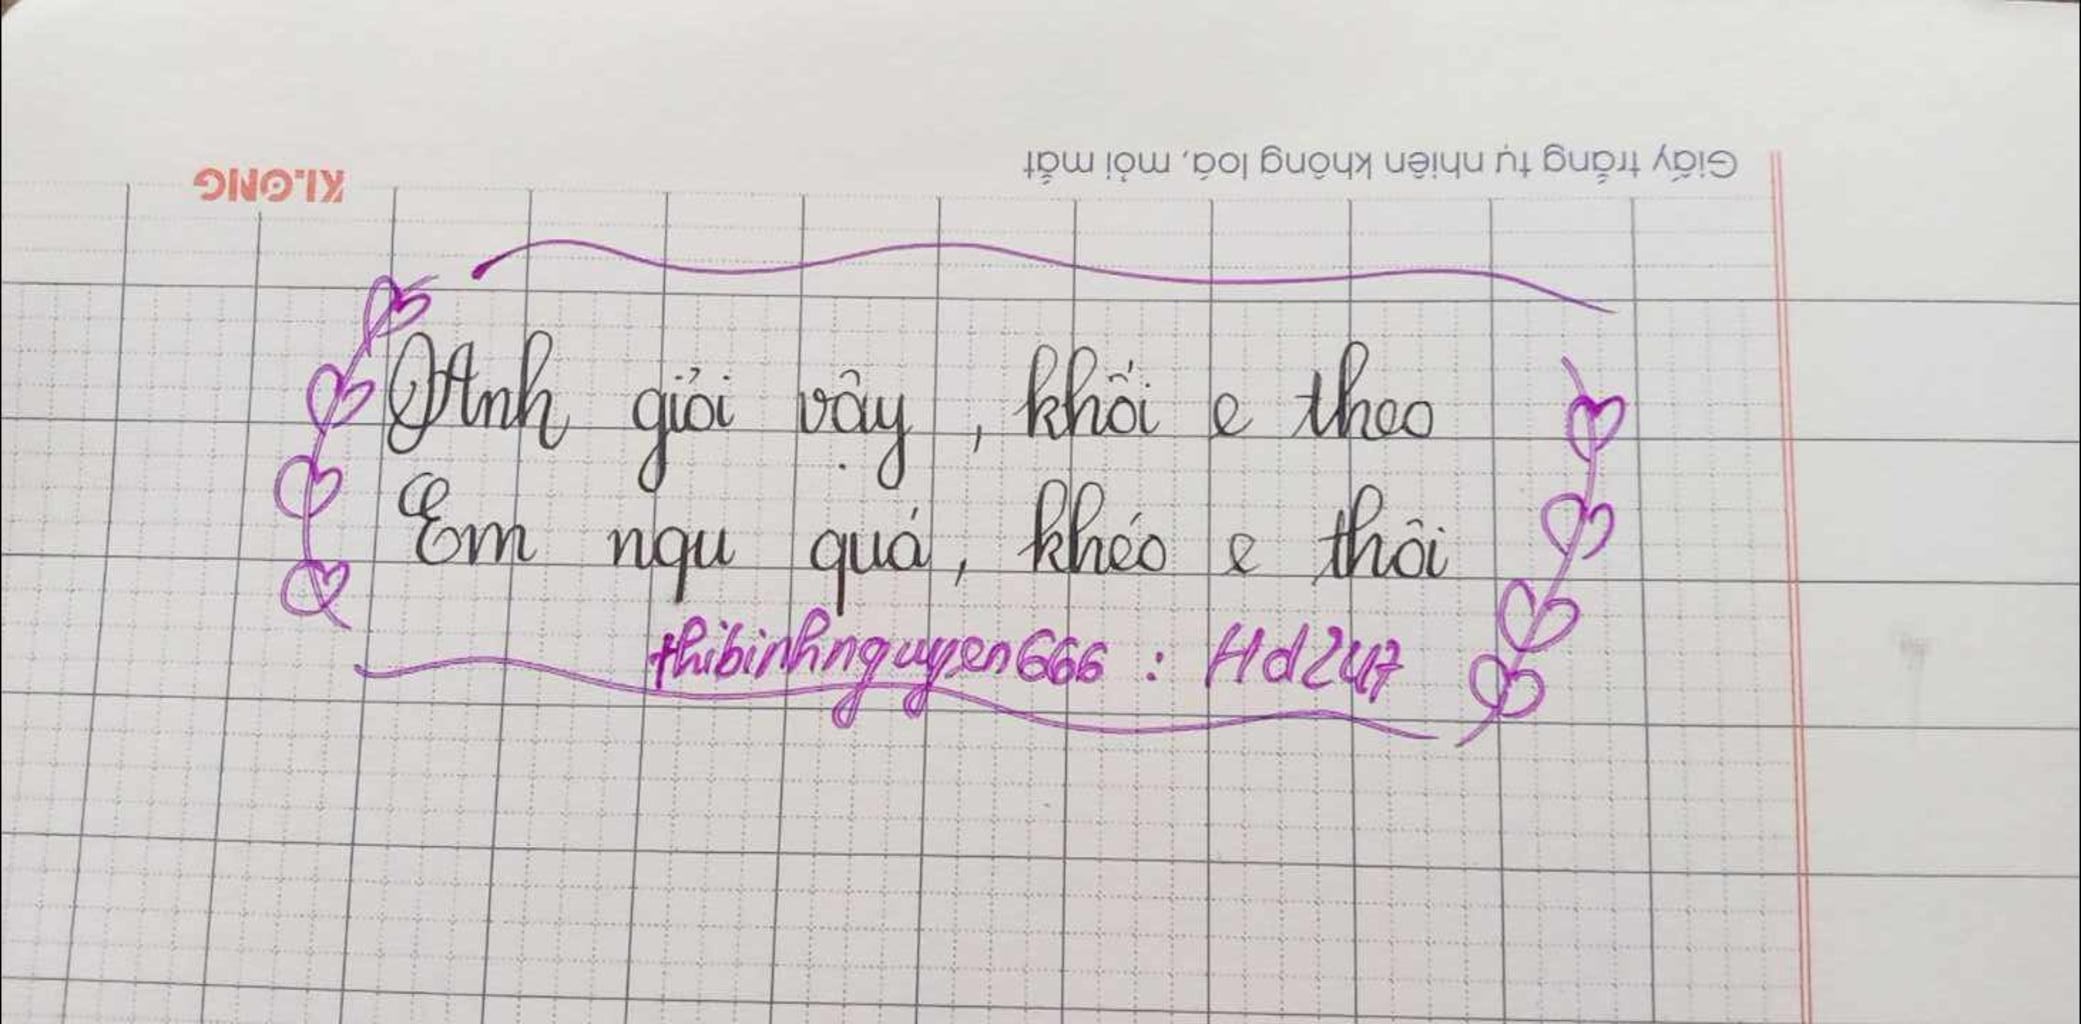 KLONG
Giấy trắng tự nhiên không loá, mỏi mắt
Anh giỏi vậy, khối e theo
Em ngu quá, khéo e thôi
thibinhnguyen666 : Hd247